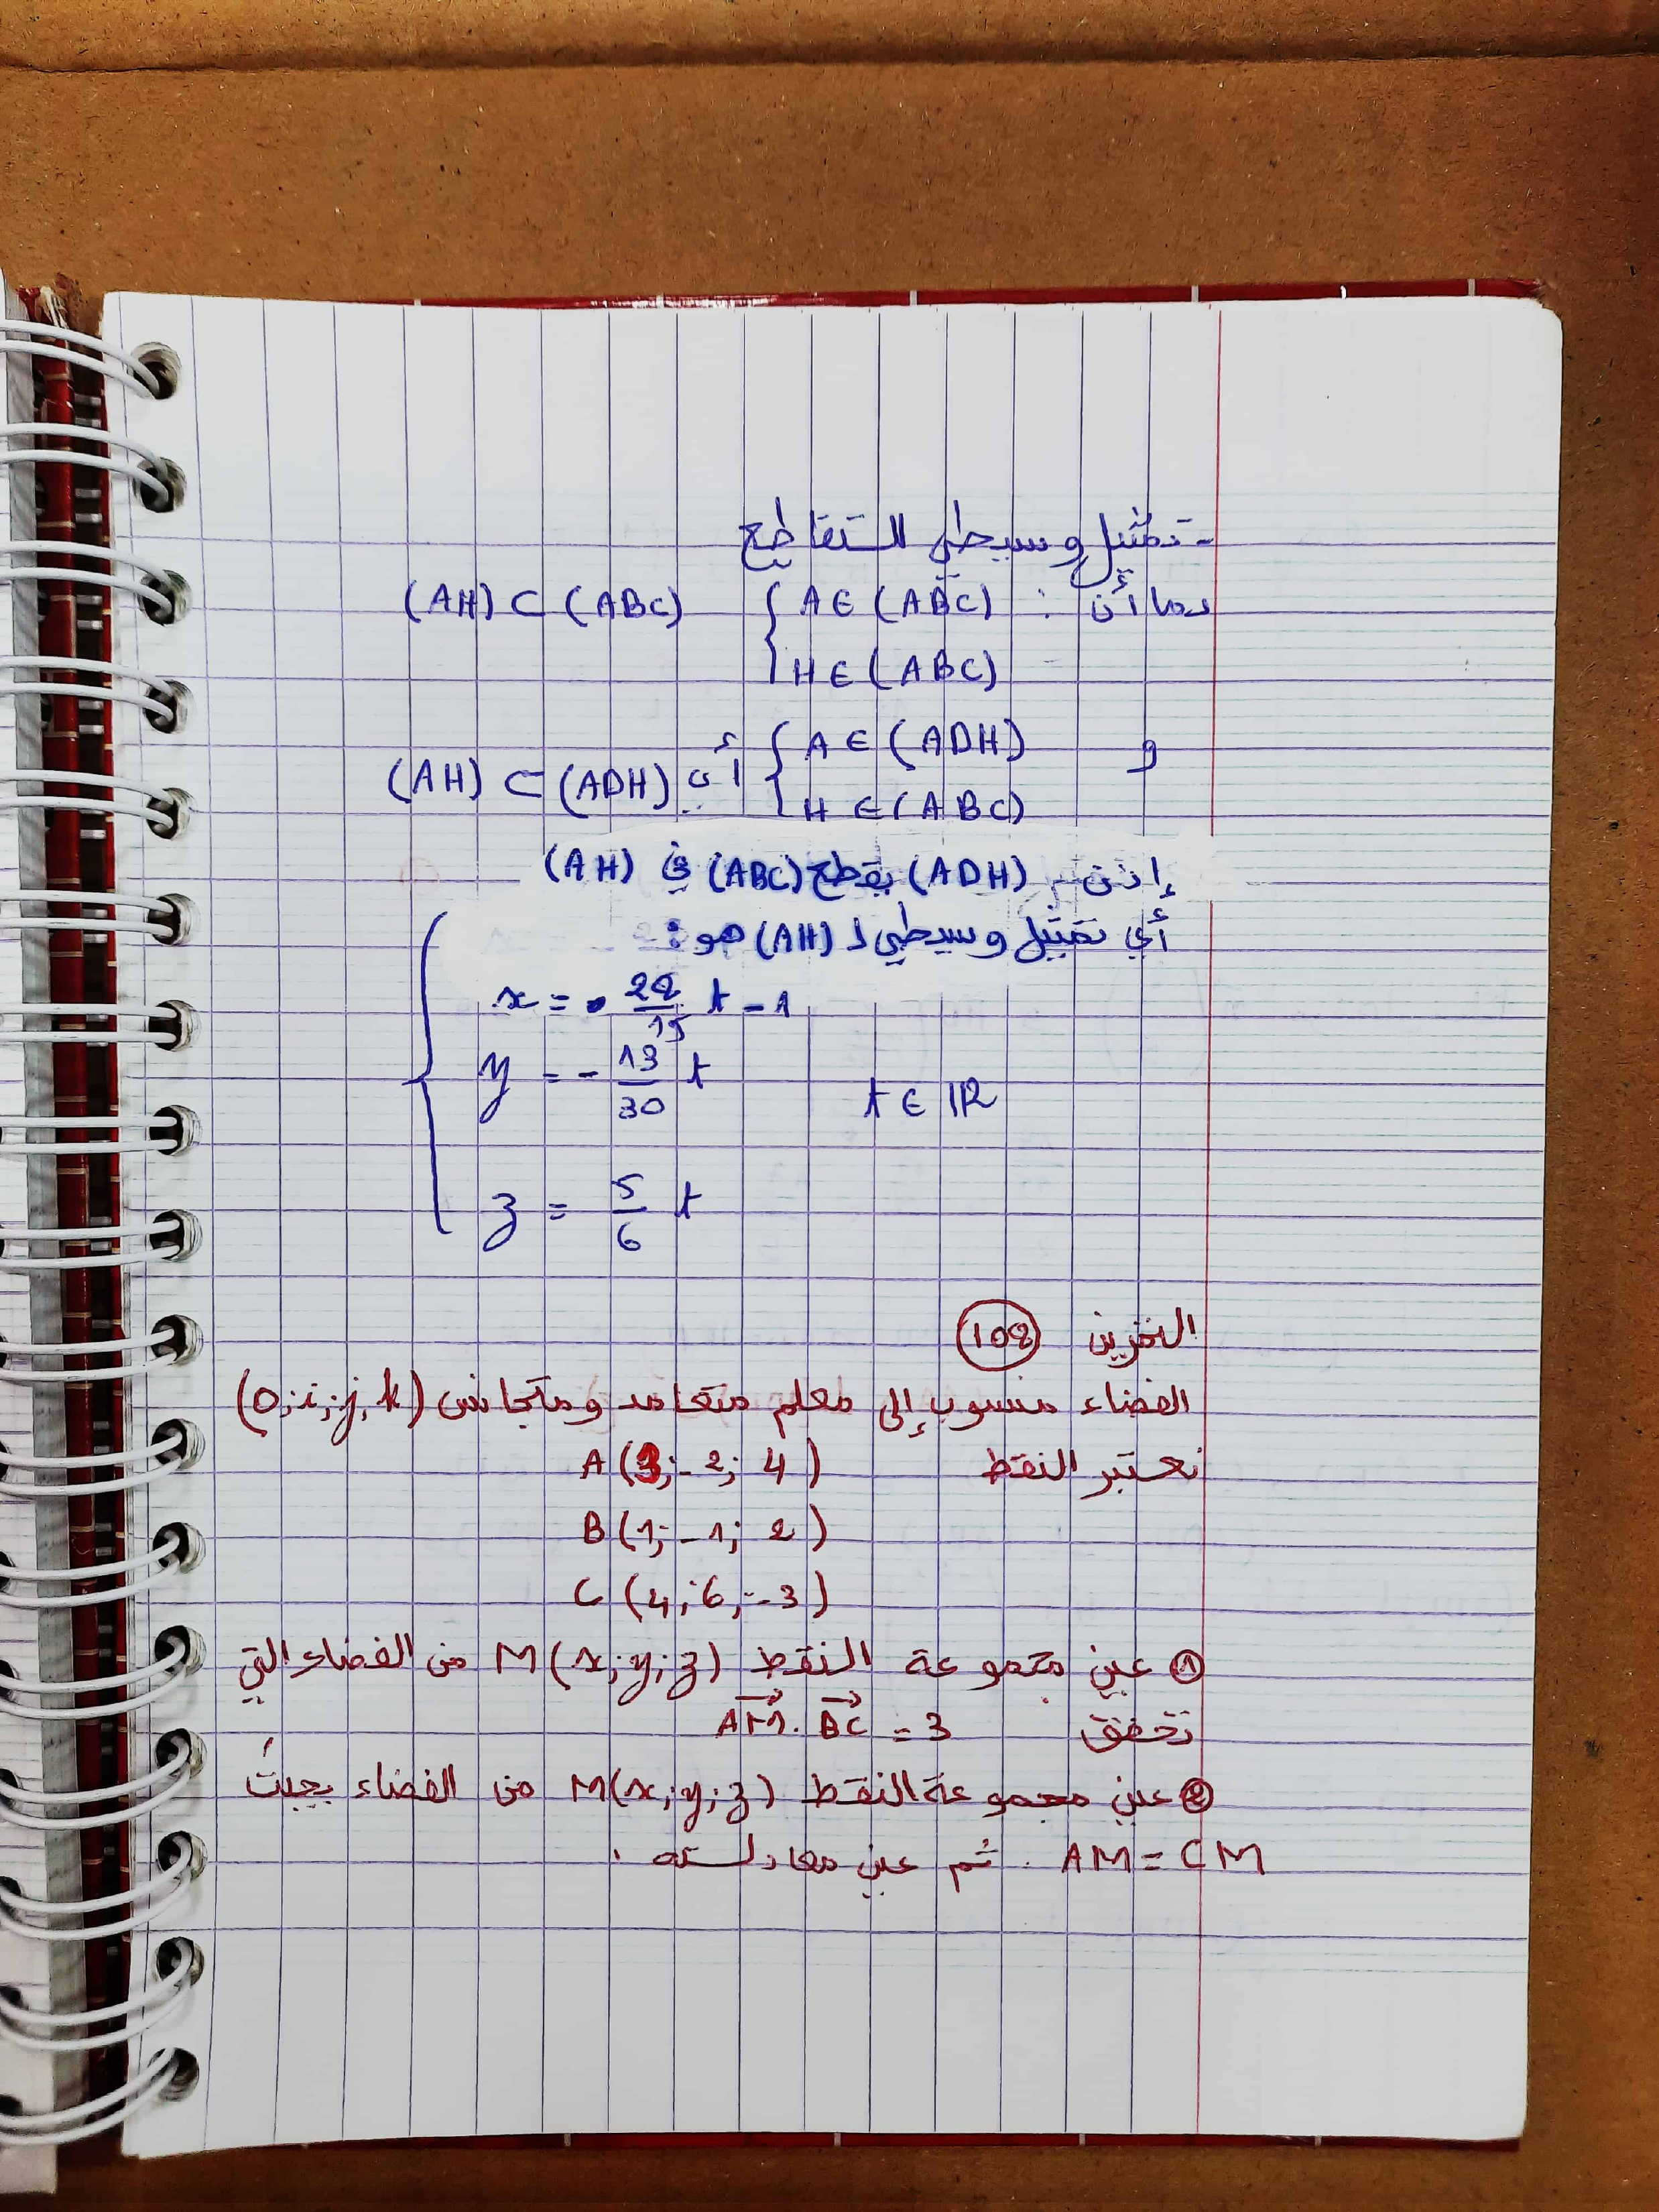 - تمثيل وسيطي للتقاطع
بما أن : { A ∈ (ABC) (AH) ⊂ (ABC)
H ∈ (ABC)
و { A ∈ (ADH)
H ∈ (ABC) أي (AH) ⊂ (ADH)
إذن (ADH) يقطع (ABC) في (AH)
أي تمثيل وسيطي لـ (AH) هو :
x = - 22/15 t - 1
y = - 13/30 t t ∈ IR
z = 5/6 t
التمرين 108
الفضاء منسوب إلى معلم متعامد ومتجانس (o;i;j;k)
نعتبر النقط A(3;-2;4)
B(1;-1;2)
C(4;6;-3)
① عين مجموعة النقط M(x;y;z) من الفضاء التي
تحقق AM . BC = 3
② عين مجموعة النقط M(x;y;z) من الفضاء بحيث
AM = CM . ثم عين معادلته .